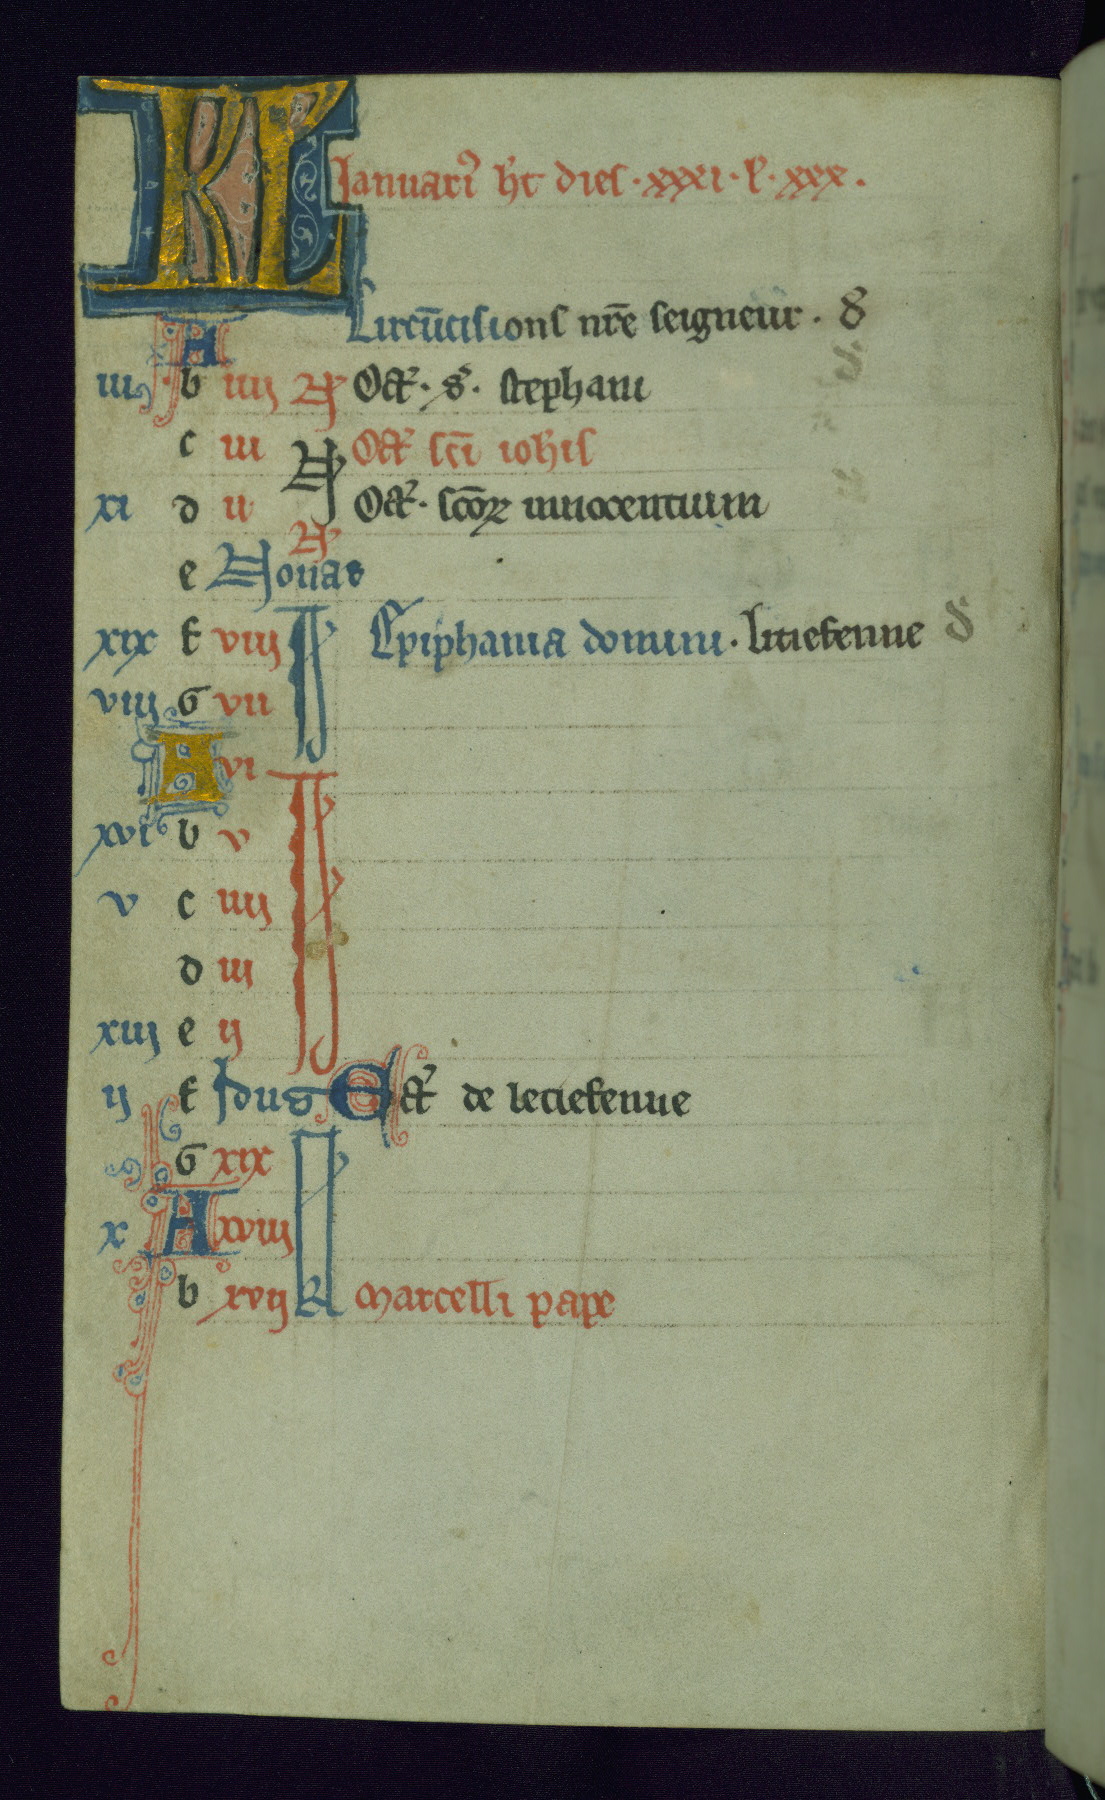 KL Januari' h't dies · xxxi · l' · xxx .
A Circu̅cisions nr̅e seigneur . 8
iii b iiii N' Oct' · s' · stephani
c iii N' Oct' sc̅i ioh'is
xi d ii N' Oct' · sc̅oꝝ innocentium
e Nonas
xix f viii Epiphania domini · litiefenne
viii G vii
A vi
xvi b v
v c iiii
d iii
xiii e ii
ii f Idus Oct' de letiefenne
G xix
x A xviii
b xvii marcelli pape